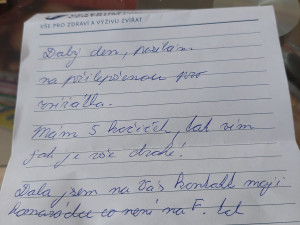 VŠE PRO ZDRAVÍ A VÝŽIVU ZVÍŘAT
Dobrý den, posílám
na přilepšenou pro
zvířátka.
Mám 5 kočiček, tak vím
jak je vše drahé!
Dala jsem na Vás kontakt mojí
kamarádce co není na F.